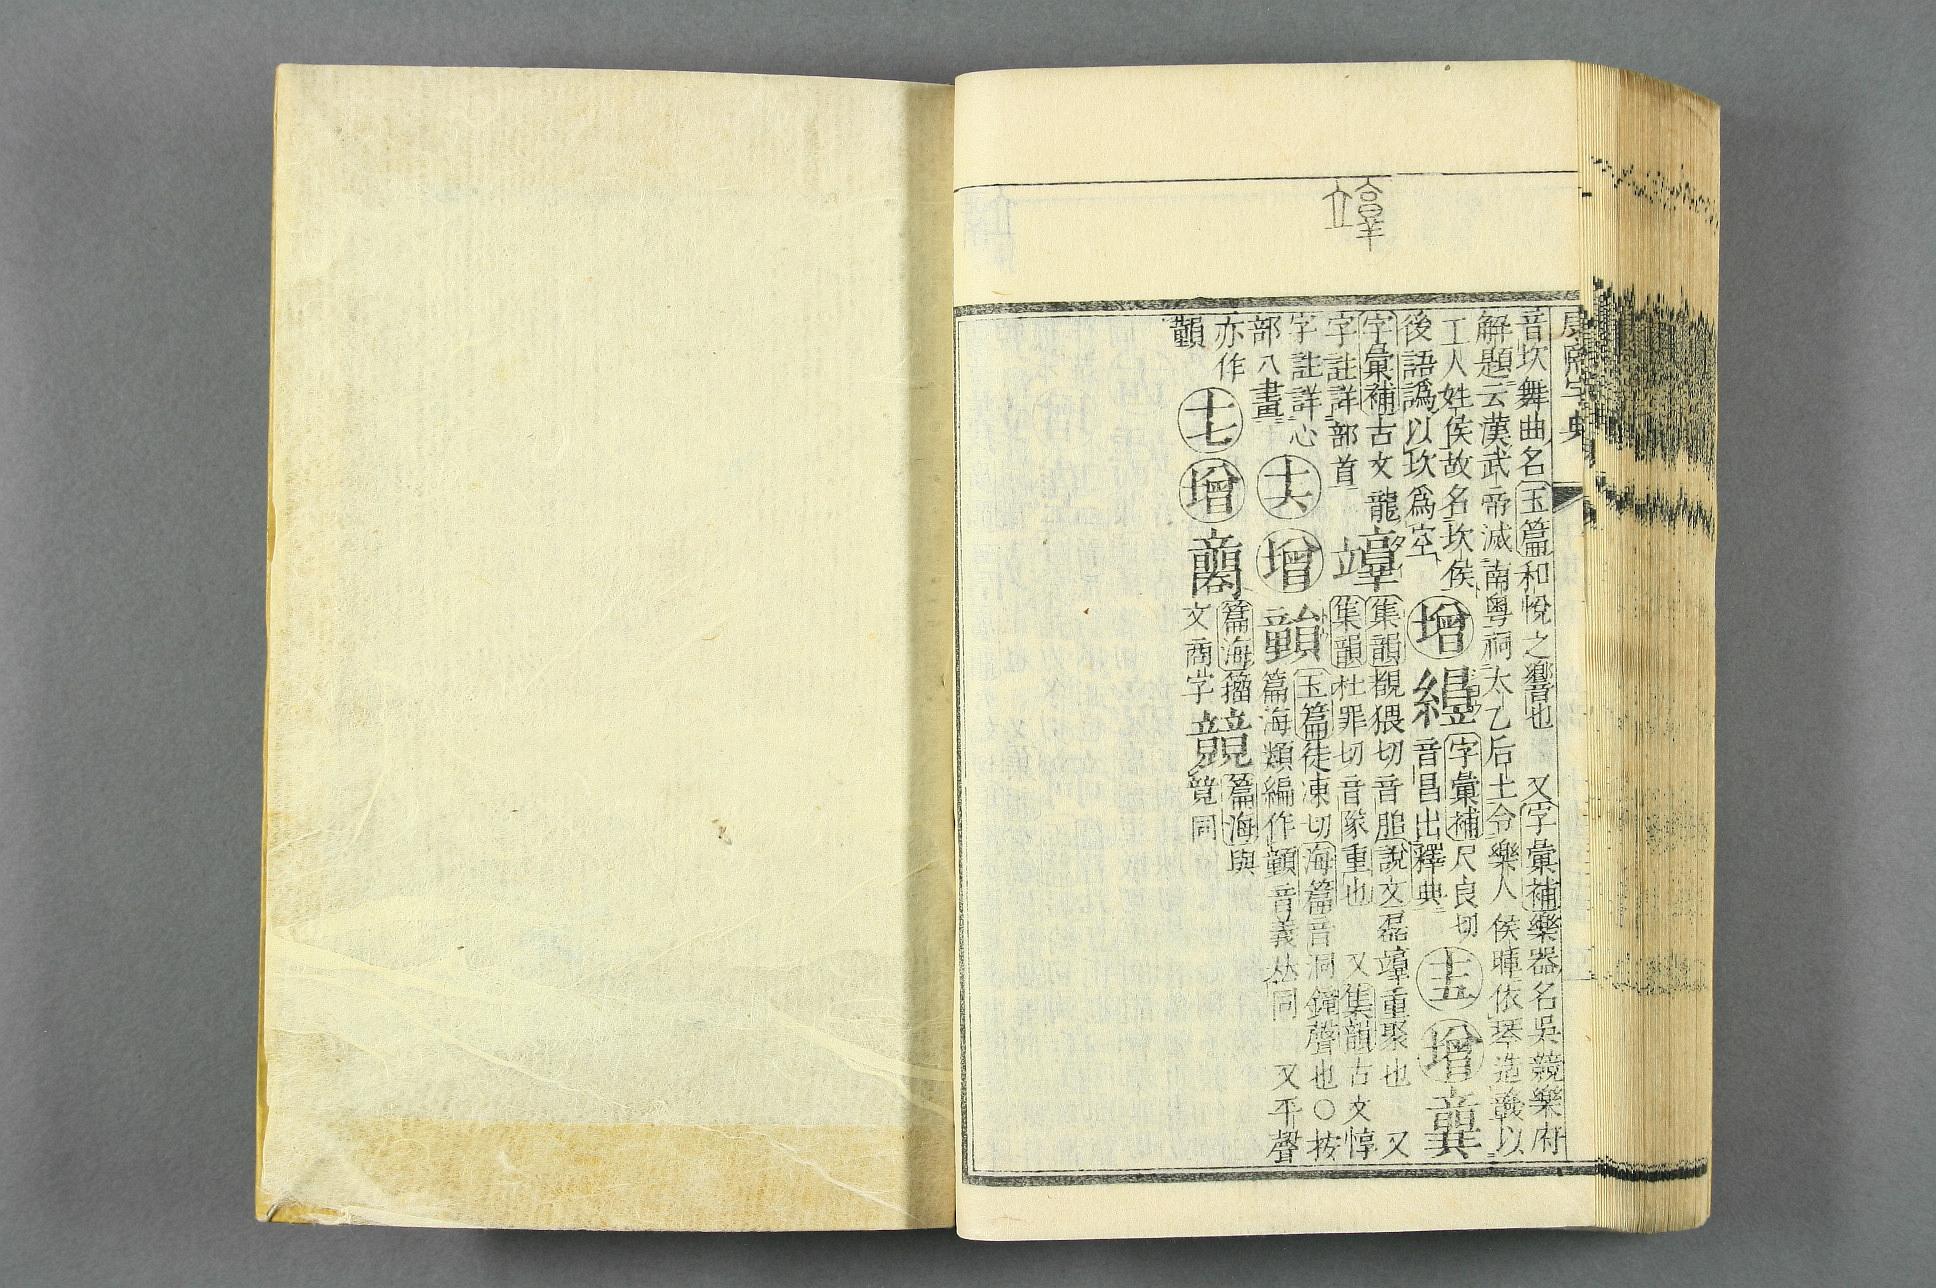 康熙字典
音坎舞曲名玉篇和悅之響也 又字彙補樂器名吳兢樂府
解題云漢武帝滅南粤祠太乙后土令樂人侯暉依琴造以
工人姓侯故名坎侯
後語譌以坎爲空
增
字彙補尺良切
音昌出釋典
十五
增
字彙補古文龍
字註詳部首
䇏
集韻覩猥切音腿說文磊䇏重聚也 又
集韻杜罪切音隊重也 又集韻古文惇
字註詳心
部八畫
十六
增
玉篇徒凍切海篇音洞鐘聲也○按
篇海類編作音義𠀤同 又平聲
亦作
十七
增
篇海籀
文商字
篇海與
同
䇏